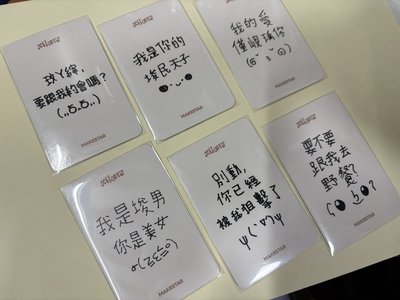 玟丫綵,
要跟我約會嗎?
MAKESTAR
我是你的
埈民天子
MAKESTAR
我的愛
僅渥瑀你
MAKESTAR
我是埈男
你是美女
MAKESTAR
別動,
你已經
被我狙擊了
MAKESTAR
要不要
跟我去
野餐?
MAKESTAR